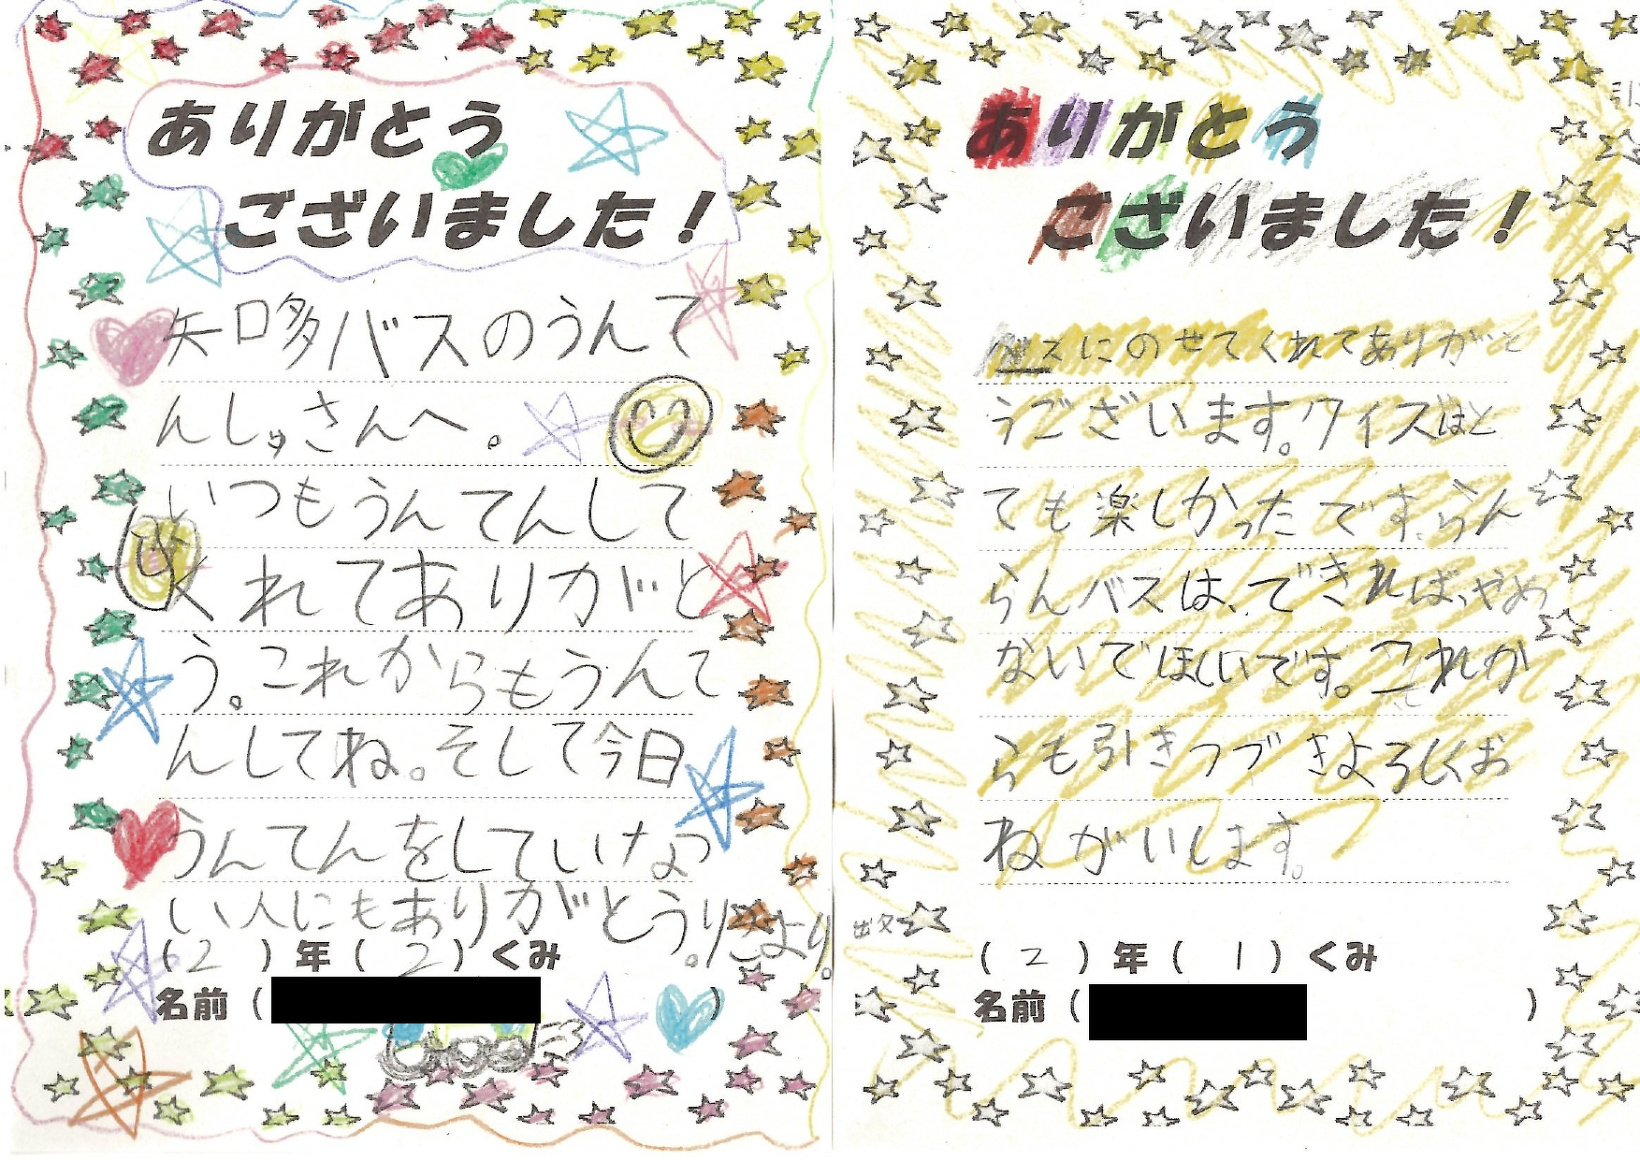 ありがとう
ございました！
知多バスのうんて
んしゅさんへ。
いつもうんてんして
くれてありがと
う。これからもうんて
んしてね。そして今日
うんてんをしていなっ
い人にもありがとう。
より。
(2)年(2)くみ
名前(　)
ありがとう
ございました！
バスにのせてくれてありがと
うございます。クイズはと
ても楽しかったです。らん
らんバスは、できれば、やめ
ないでほしいです。これか
らも引きつづきよろしくお
ねがいします。
(2)年(1)くみ
名前(　)